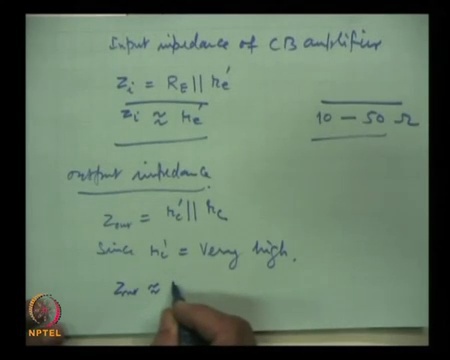 Input impedance of CB amplifier
Zi = RE || re'
Zi ≈ re'
10 — 50 Ω
output impedance
Zout = rc' || rc
Since rc' = very high.
Zout ≈
NPTEL